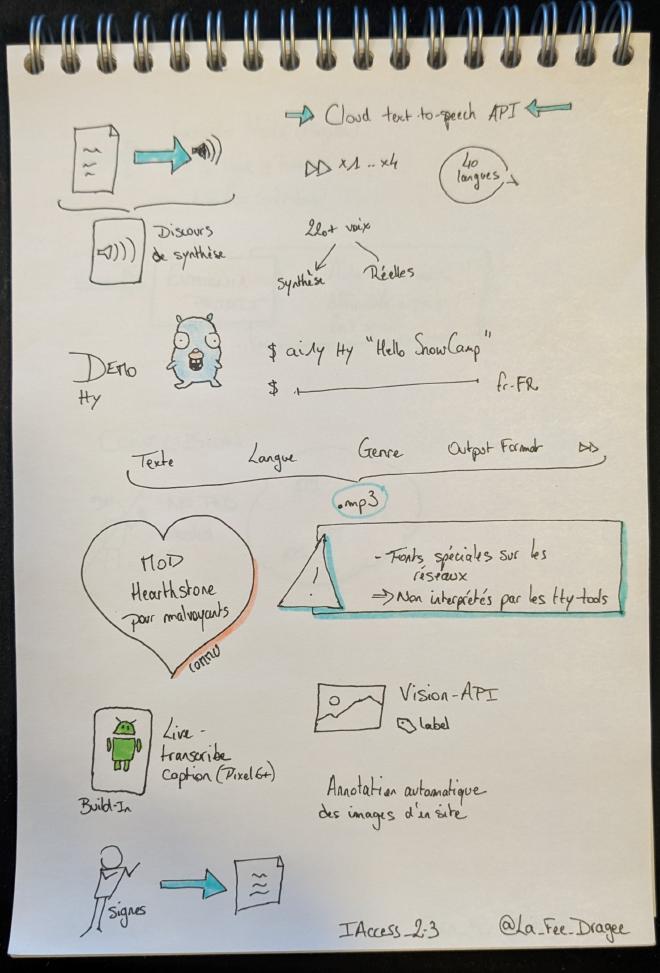 Cloud text-to-speech API
x1 .. x4
40
langues
Discours
de synthèse
220+ voix
Synthèse
Réelles
DEMO
tty
$ aily tty "Hello SnowCamp"
$
fr-FR
Texte
Langue
Genre
Output Format
.mp3
MOD
Hearthstone
pour malvoyants
!
- Fonts spéciales sur les
réseaux
=> Non interprétés par les tty-tools
Live-
transcribe
Caption (Pixel 6+)
Build-In
Vision-API
label
Annotation automatique
des images d'un site
signes
IAccess_2.3
@La_Fee_Dragee